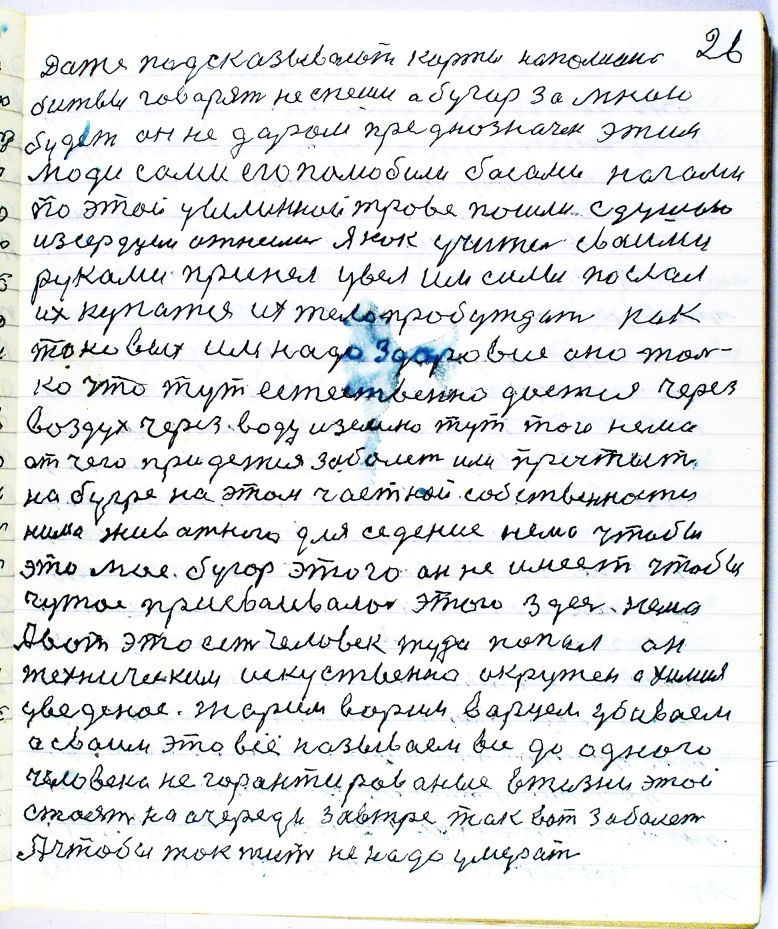 26
Даже подсказывают карты наполиана
битвы говарят неспеши а бугор за мною
будет он не даром предназначен этим
люди сами его полюбили басами нагами
по этой увилинной трове пошли с душою
изсердцем отнеслис я как учител сваими
руками принел увел им сили послал
их купатся их тело пробуждат как
таковых им надо здаровие ано тол-
ко что тут естественно дается через
воздух через воду землю тут того нема
от чего придется заболет или
на бугре на этом частной собственности
нима живатного для седение нема чтобы
это мое. бугор этого он не имеет чтобы
чужое присваивалос этого здес нема
А вот это сет человек туда попал он
техническим искуственно окружен а химия
уведеное. жарим варим варцем убиваем
а сваим это всё называем все до одного
человека не гарантированые в жизни этой
стоят на очередь завтре так вот заболет
А чтобы ток жит не надо умерат